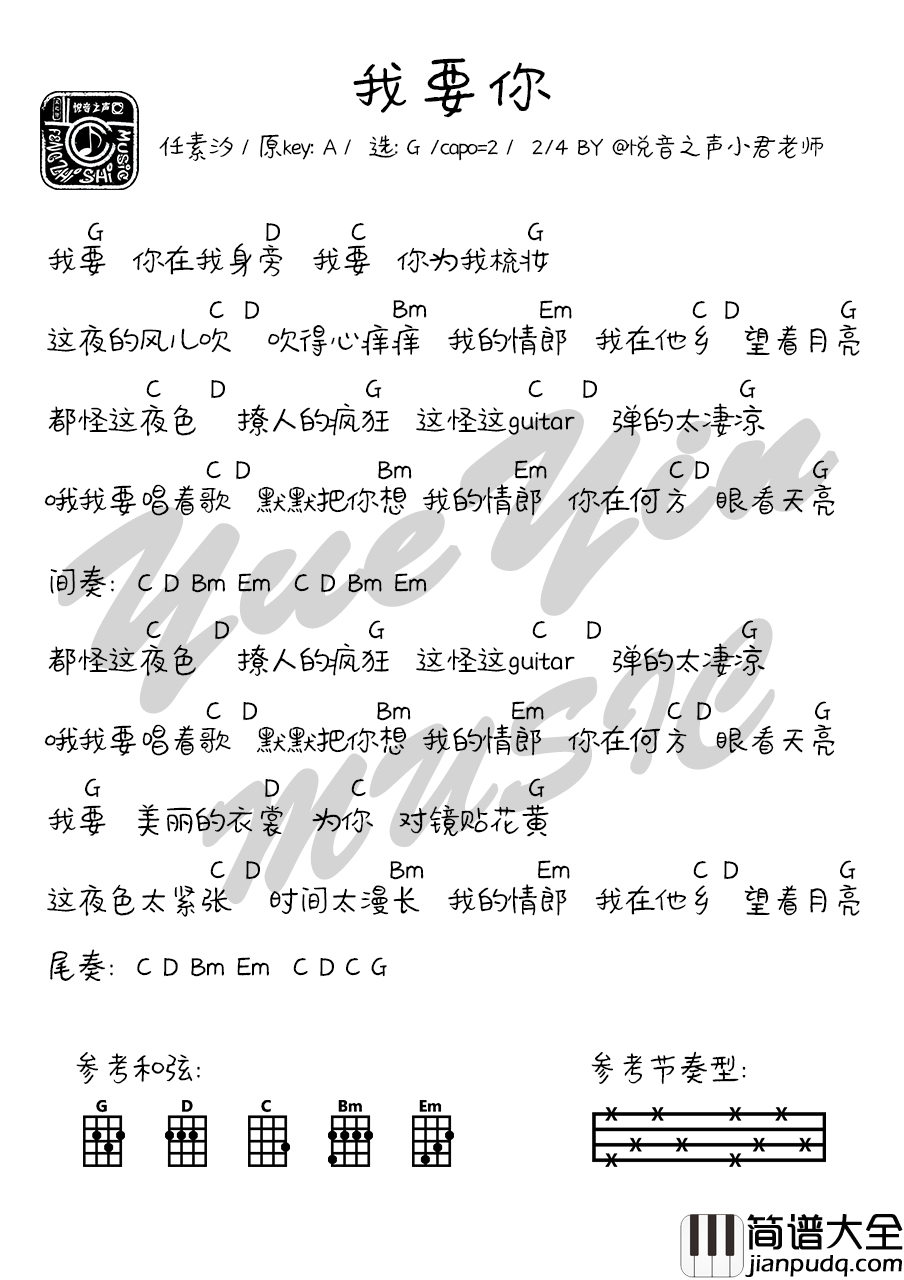 我要你
悦音之声
MUSIC
任素汐 / 原key: A / 选: G /capo=2 / 2/4 BY @悦音之声小君老师
G D C G
我要 你在我身旁 我要 你为我梳妆
C D Bm Em C D G
这夜的风儿吹 吹得心痒痒 我的情郎 我在他乡 望着月亮
C D G C D G
都怪这夜色 撩人的疯狂 这怪这guitar 弹的太凄凉
C D Bm Em C D G
哦我要唱着歌 默默把你想 我的情郎 你在何方 眼看天亮
间奏: C D Bm Em C D Bm Em
C D G C D G
都怪这夜色 撩人的疯狂 这怪这guitar 弹的太凄凉
C D Bm Em C D G
哦我要唱着歌 默默把你想 我的情郎 你在何方 眼看天亮
G D C G
我要 美丽的衣裳 为你 对镜贴花黄
C D Bm Em C D G
这夜色太紧张 时间太漫长 我的情郎 我在他乡 望着月亮
尾奏: C D Bm Em C D C G
YueYin
MUSIC
参考和弦: 参考节奏型:
G D C Bm Em
X X X X
X X X X
X X
简谱大全
jianpudq.com